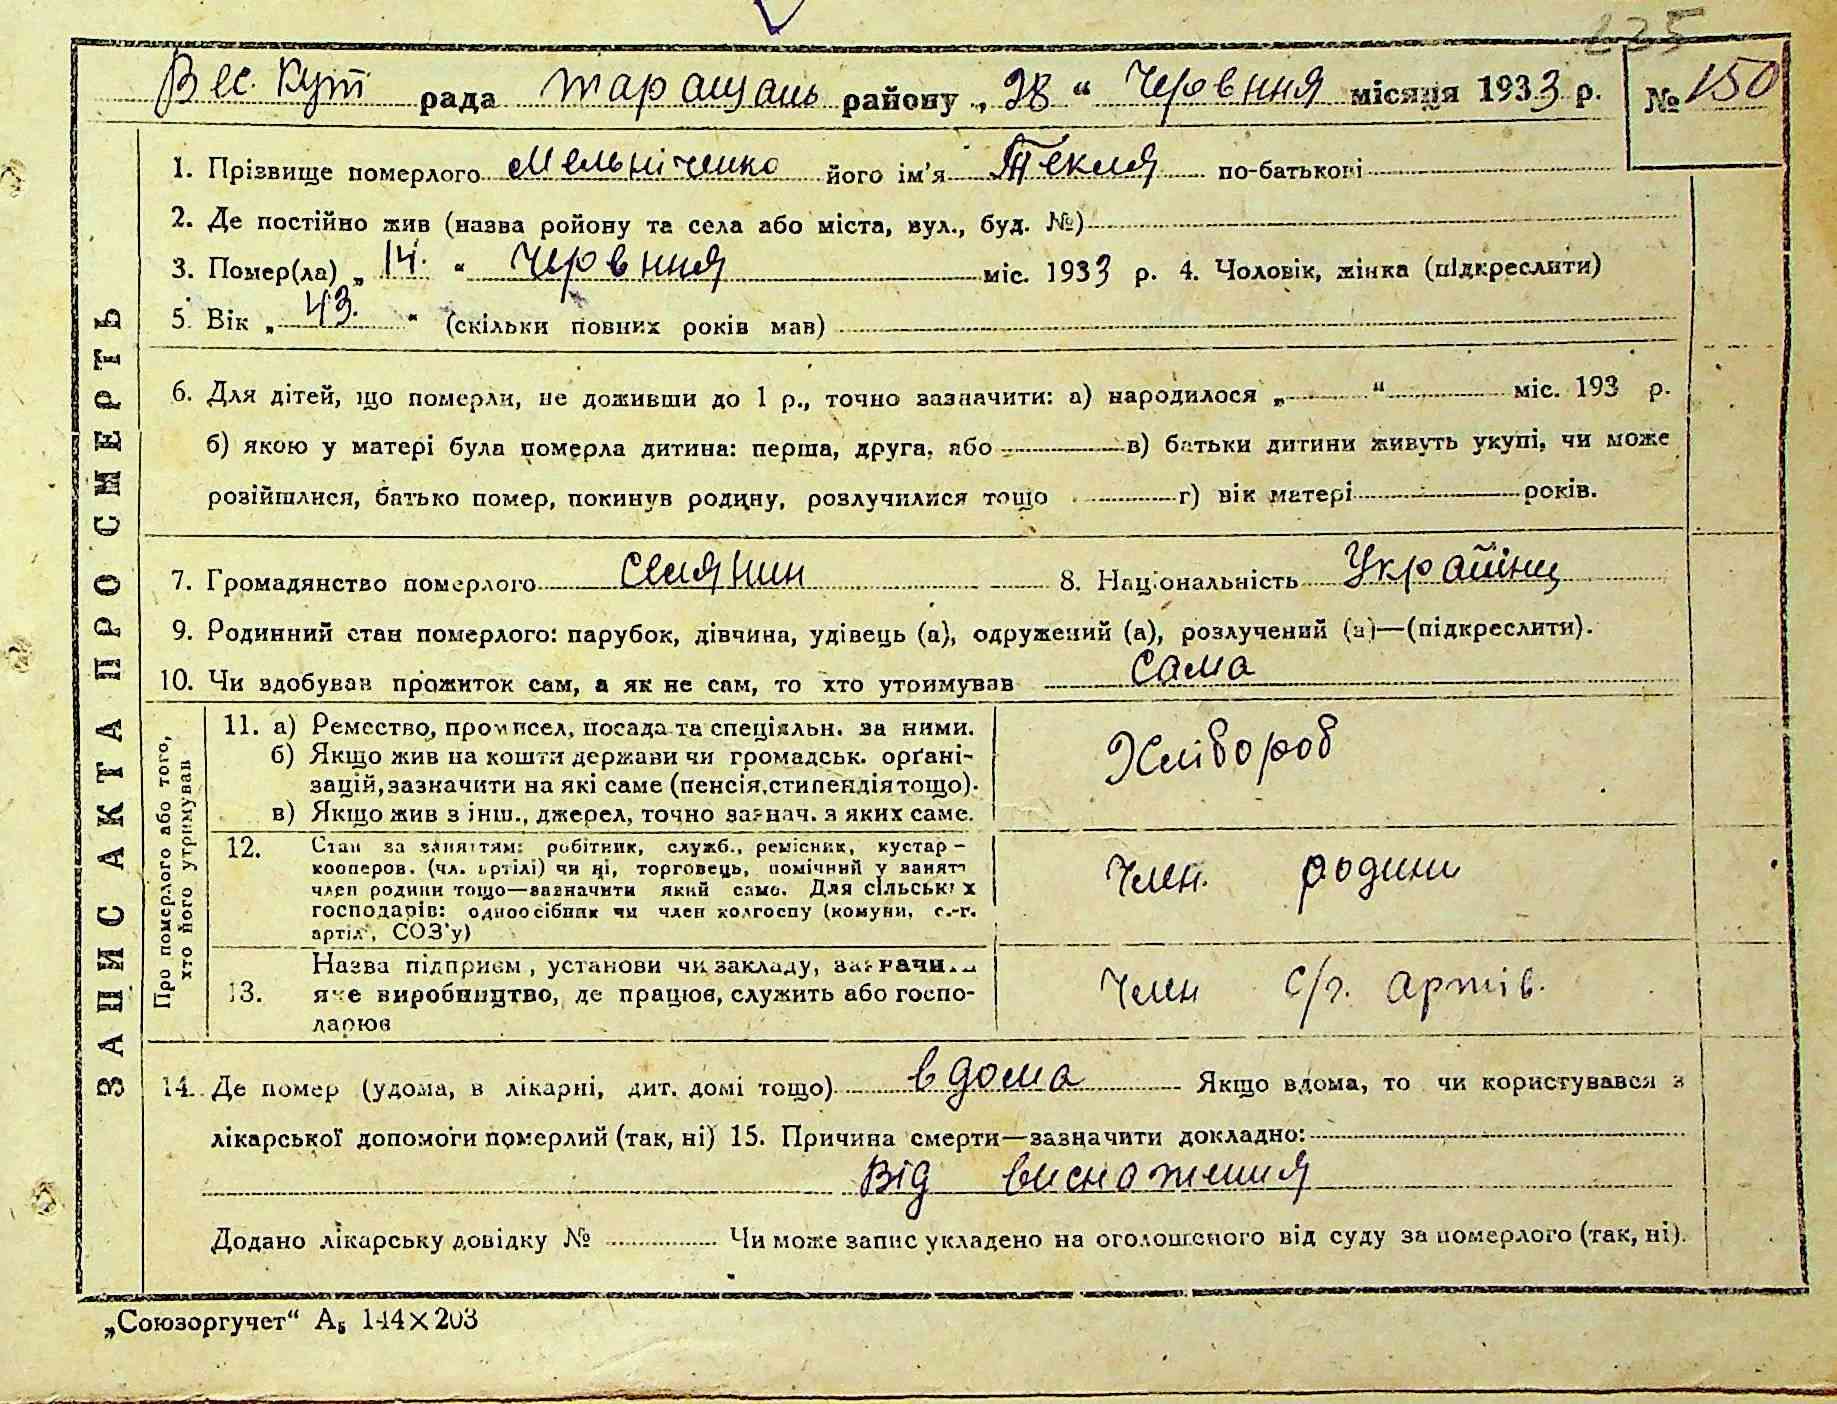 235
Вес. Кут рада Таращань району „28“ Червння місяця 1933 р. № 150
1. Прізвище померлого Мельніченко його ім'я Текля по-батькові
2. Де постійно жив (назва ройону та села або міста, вул., буд. №)
3. Помер(ла) „14.“ Червння міс. 1933 р. 4. Чоловік, жінка (підкреслити)
5. Вік „43.“ (скільки повних років мав)
6. Для дітей, що померли, не доживши до 1 р., точно зазначити: а) народилося „ “ міс. 193 р.
б) якою у матері була померла дитина: перша, друга, або в) батьки дитини живуть укупі, чи може
розійшлися, батько помер, покинув родину, розлучилися тощо г) вік матері років.
7. Громадянство померлого селянин 8. Національність Українц
9. Родинний стан померлого: парубок, дівчина, удівець (а), одружений (а), розлучений (а)—(підкреслити).
10. Чи здобував прожиток сам, а як не сам, то хто утримував сама
ЗАПИС АКТА ПРО СМЕРТЬ
Про померлого або того,
хто його утримував
11. а) Ремество, промисел, посада та спеціяльн. за ними.
б) Якщо жив на кошти держави чи громадськ. орґані-
зацій, зазначити на які саме (пенсія, стипендія тощо).
в) Якщо жив з інш., джерел, точно зазнач. з яких саме.
Хлібороб
12. Стан за заняттям: робітник, служб., ремісник, кустар-
кооперов. (чл. артілі) чи ні, торговець, помічний у занятт
член родини тощо—зазначити який саме. Для сільських
господарів: одноосібник чи член колгоспу (комуни, с.-г.
артілі, СОЗ'у)
Член. родини
13. Назва підприєм, установи чи закладу, зазначи...
яке виробництво, де працює, служить або госпо-
дарює
Член с/г. артів.
14. Де помер (удома, в лікарні, дит. домі тощо) в дома Якщо вдома, то чи користувався з
лікарської допомоги померлий (так, ні) 15. Причина смерти—зазначити докладно:
Від виснаження
Додано лікарську довідку № Чи може запис укладено на оголошеного від суду за померлого (так, ні).
„Союзоргучет“ А₅ 144×203